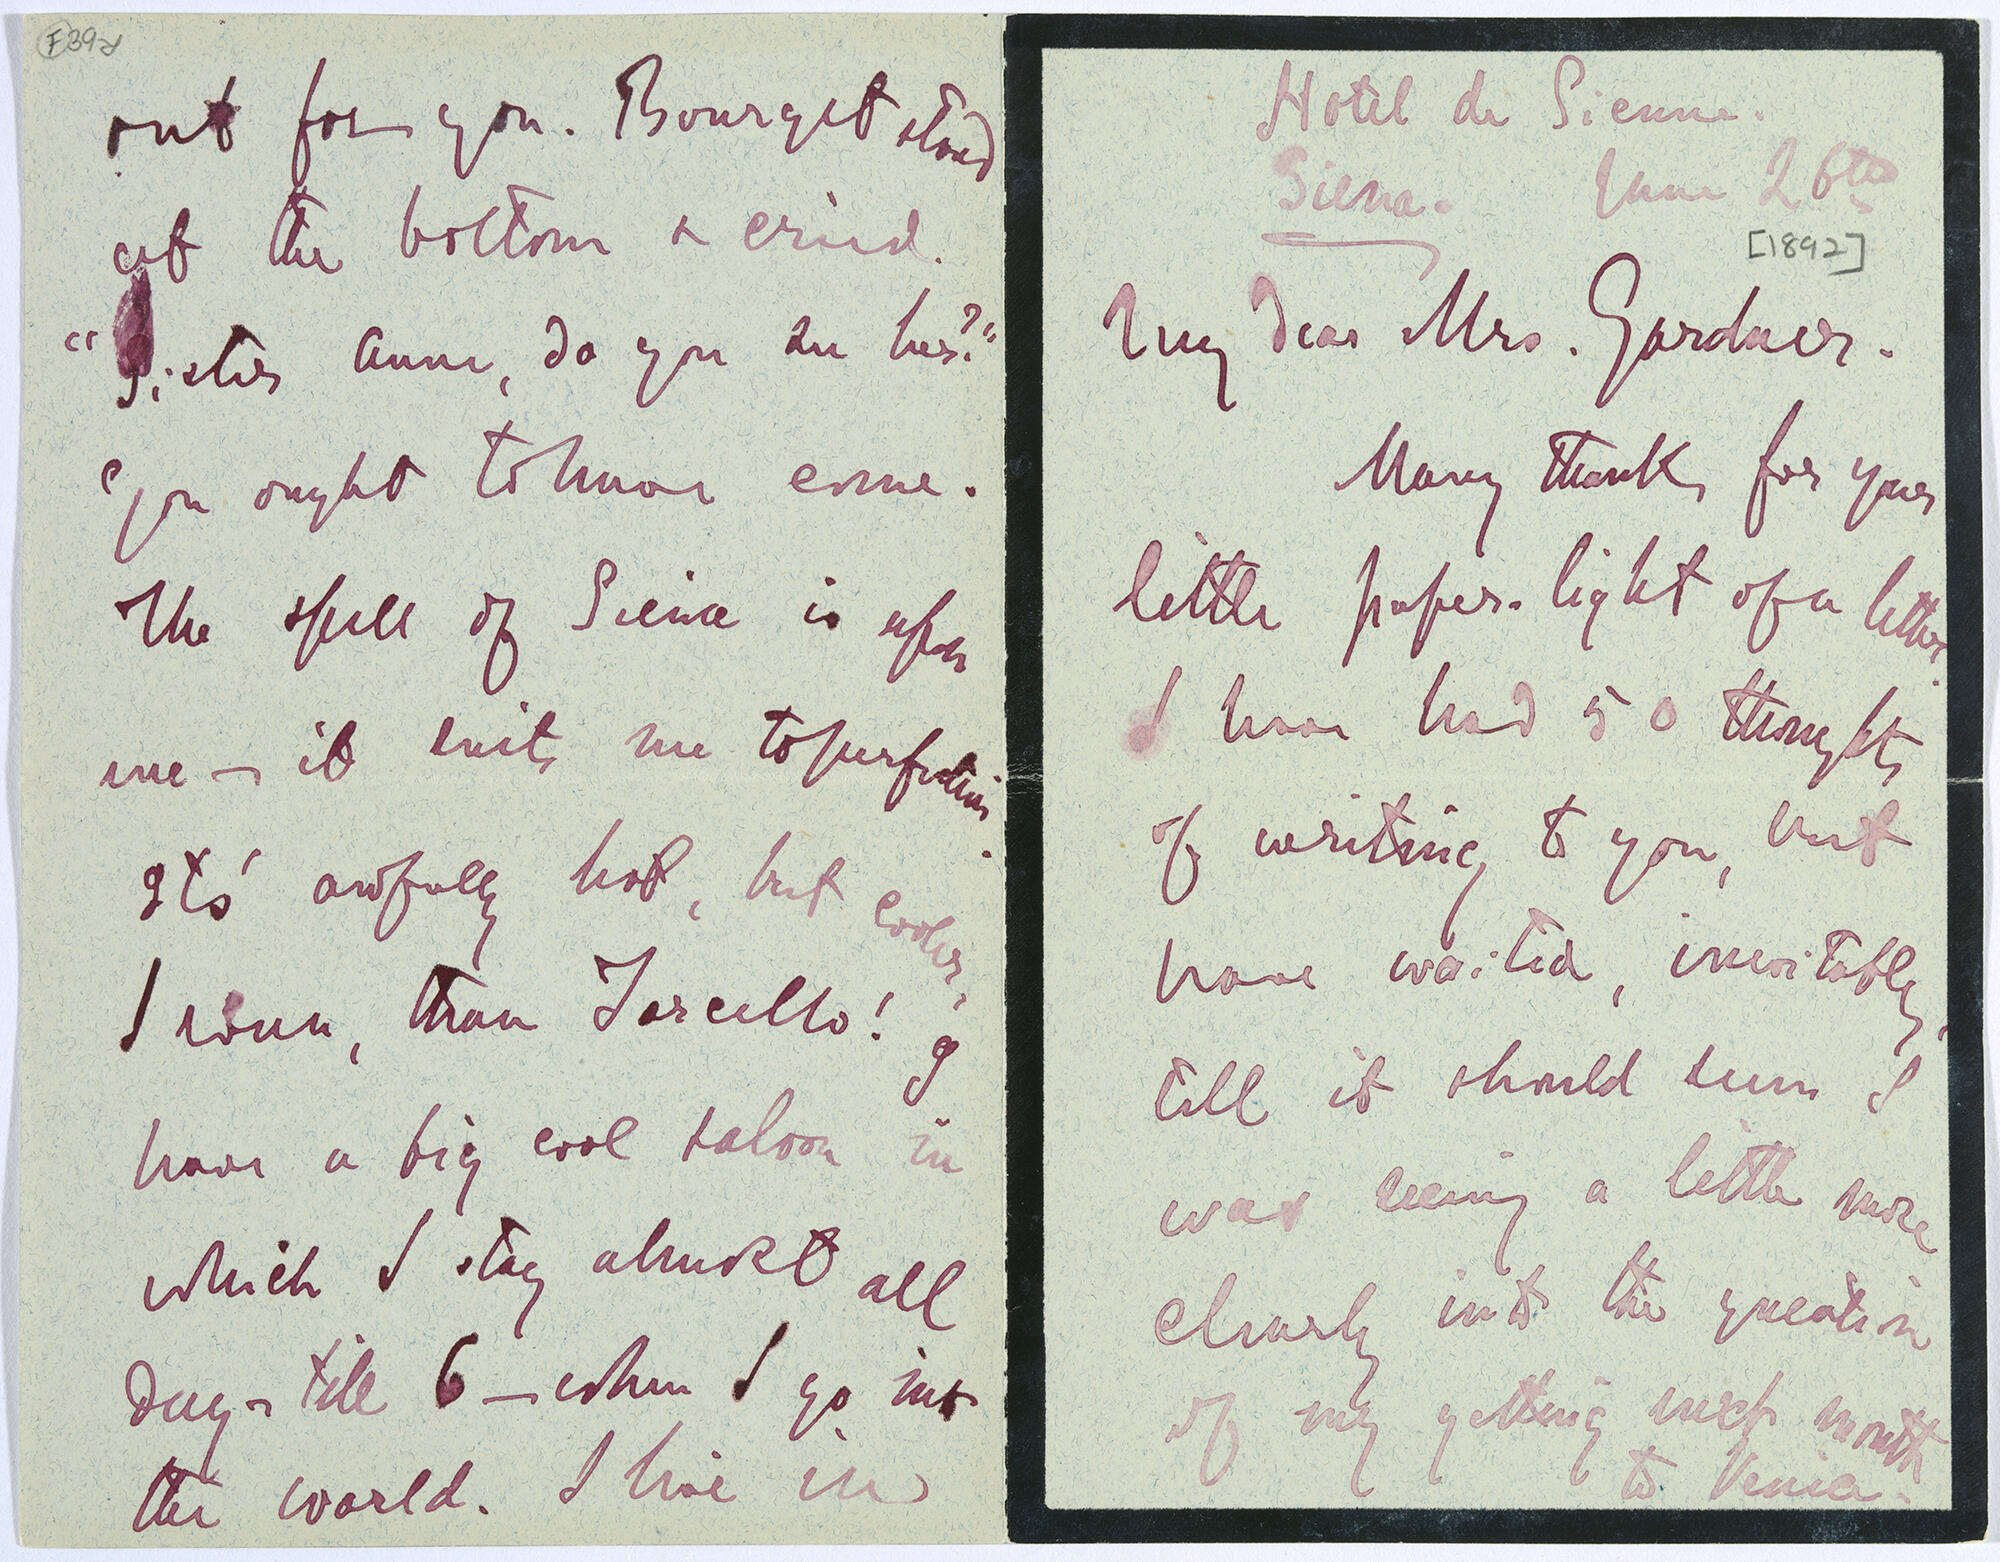 Hotel de Sienne.
Siena. June 26th
[1892]
My dear Mrs. Gardner.
Many thanks for your
little paper-light of a letter.
I have had 50 thoughts
of writing to you, but
have waited, inevitably,
till it should seem I
was seeing a little more
clearly into the question
of my getting next month
to Venice.
F39d
out for you. Bourget stood
at the bottom & cried.
"Sister Anne, do you see her?"
You ought to have come.
The spell of Siena is upon
me — it suits me to perfection.
Its' awfully hot, but cooler,
I ween, than Torcello! I
have a big cool saloon in
which I stay almost all
day — till 6 — when I go into
the world. I live in